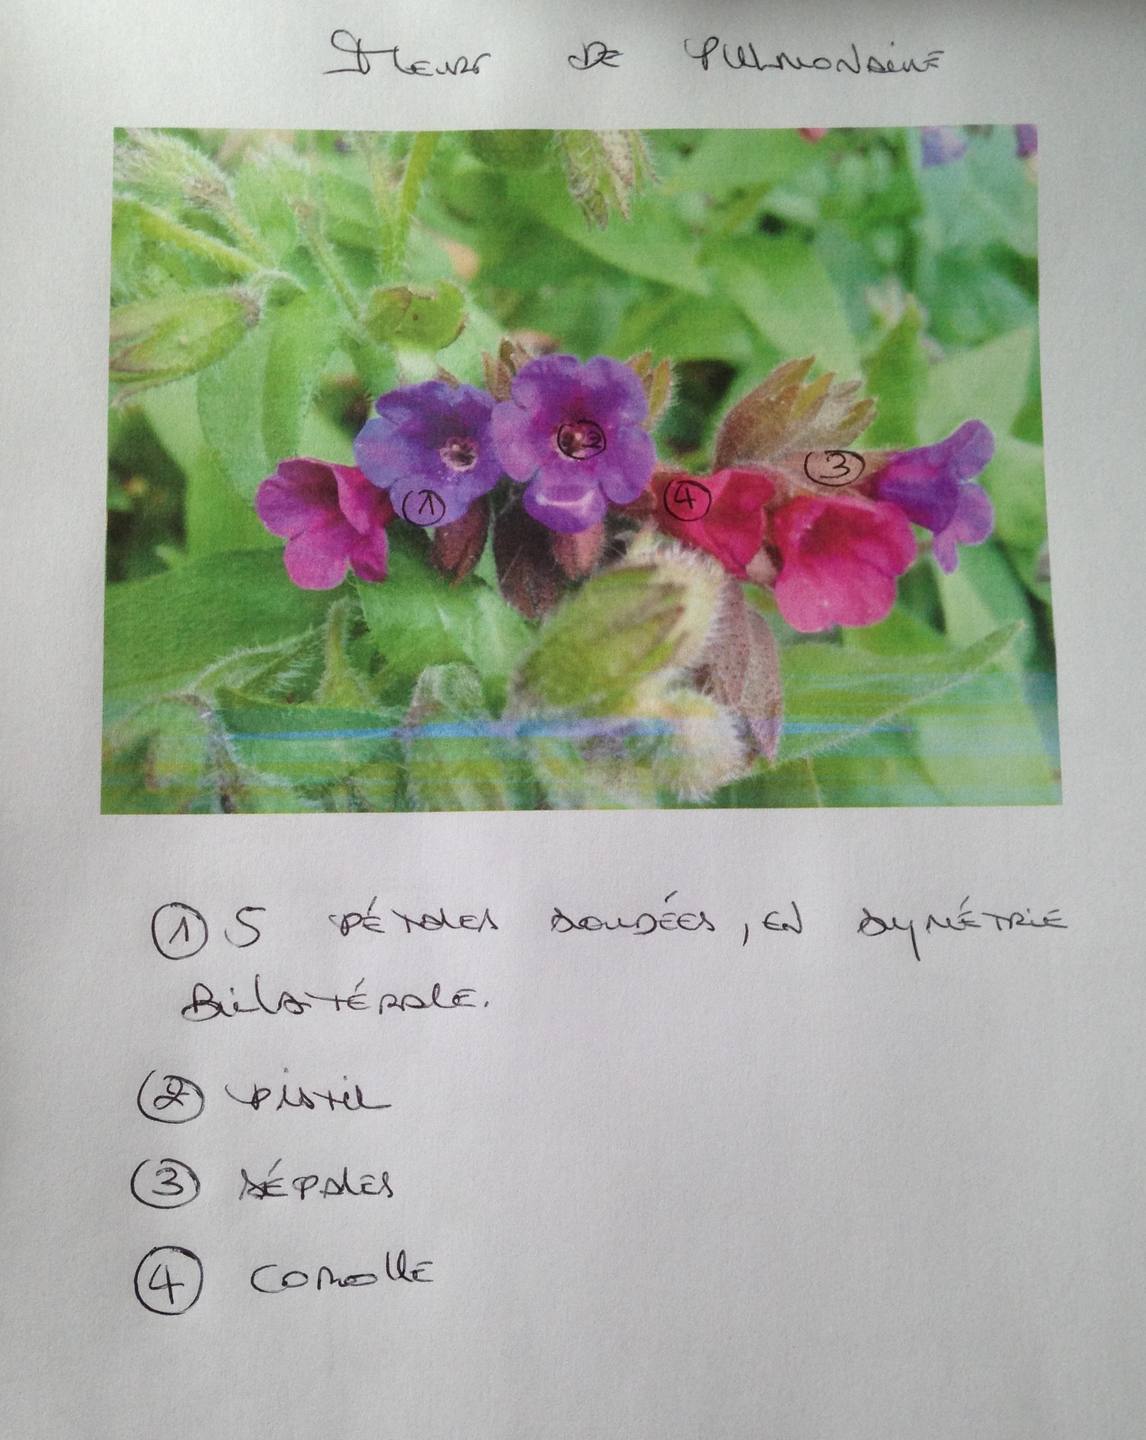 Fleur de Pulmonaire
1
2
3
4
① 5 pétales soudées, en symétrie
bilatérale.
② pistil
③ sépales
④ corolle